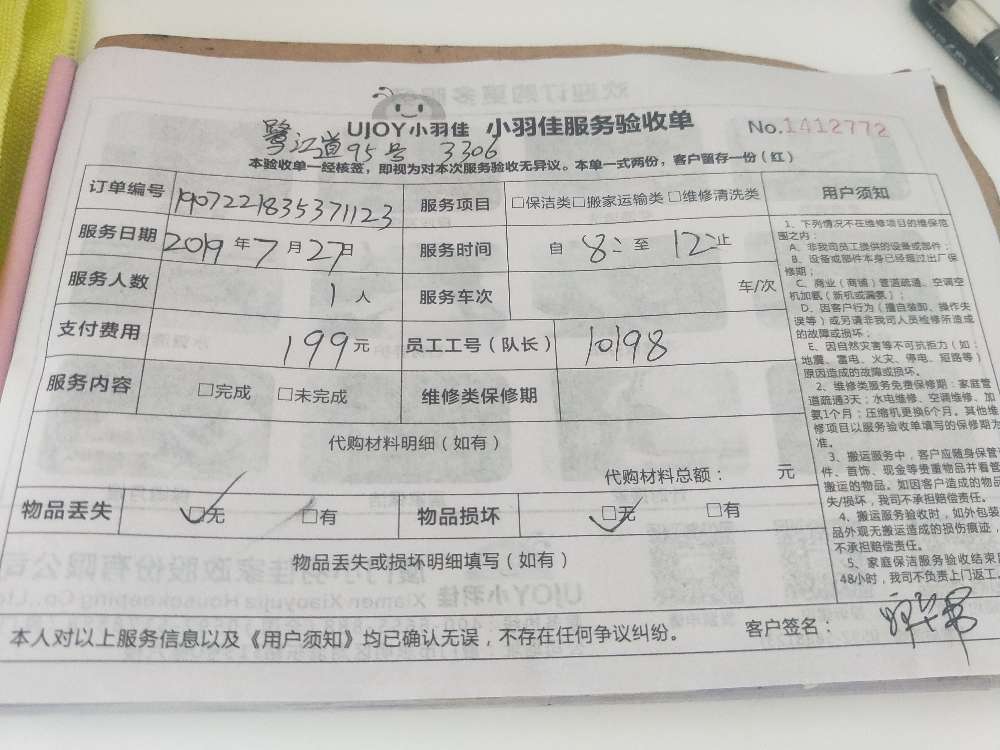 UJOY小羽佳 小羽佳服务验收单 No.1412772
鹭江道95号 3306
本验收单一经核签，即视为对本次服务验收无异议。本单一式两份，客户留存一份（红）
订单编号 1907221835371123 服务项目 □保洁类□搬家运输类□维修清洗类
服务日期 2019年7月27日 服务时间 自 8: 至 12: 止
服务人数 1人 服务车次 车/次
支付费用 199元 员工工号（队长） 10198
服务内容 □完成 □未完成 维修类保修期
代购材料明细（如有）
代购材料总额： 元
物品丢失 □无 □有 物品损坏 □无 □有
物品丢失或损坏明细填写（如有）
本人对以上服务信息以及《用户须知》均已确认无误，不存在任何争议纠纷。 客户签名：
用户须知
1、下列情况不在维修项目的维保范
围之内：
A、非我司员工提供的设备或部件；
B、设备或部件本身已经超过出厂保
修期；
C、商业（商铺）管道疏通、空调空
机加氨（新机或漏氨）；
D、因客户行为（擅自装卸、操作失
误等）或另请非我司人员检修所造成
的故障或损坏；
E、因自然灾害等不可抗拒力（如：
地震、雷电、火灾、停电、短路等）
原因造成的故障或损坏。
2、维修类服务免费保修期：家庭管
道疏通3天；水电维修、空调维修、加
氨1个月；压缩机更换6个月。其他维
修项目以服务验收单填写的保修期为
准。
3、搬运服务中，客户应随身保管
件、首饰、现金等贵重物品并看管
搬运的物品。如因客户造成的物品
失/损坏，我司不承担赔偿责任。
4、搬运服务验收时，如外包装
品外观无搬运造成的损伤痕迹，
不承担赔偿责任。
5、家庭保洁服务验收结束
48小时，我司不负责上门返工